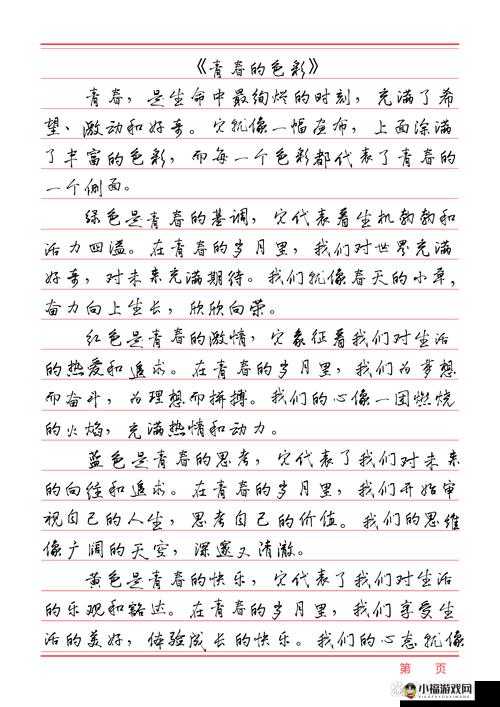 《青春的色彩》
青春，是生命中最绚烂的时刻，充满了希
望、激动和好奇。它就像一幅画布，上面涂满
了丰富的色彩，而每一个色彩都代表了青春的
一个侧面。
绿色是青春的基调，它代表着生机勃勃和
活力四溢。在青春的岁月里，我们对世界充满
好奇，对未来充满期待。我们就像春天的小草，
奋力向上生长，欣欣向荣。
红色是青春的激情，它象征着我们对生活
的热爱和追求。在青春的岁月里，我们为梦想
而奋斗，为理想而拼搏。我们的心像一团燃烧
的火焰，充满热情和动力。
蓝色是青春的思考，它代表了我们对未来
的向往和追求。在青春的岁月里，我们开始审
视自己的人生，思考自己的价值。我们的思维
像广阔的天空，深邃又清澈。
黄色是青春的快乐，它代表了我们对生活
的乐观和豁达。在青春的岁月里，我们享受生
活的美好，体验成长的快乐。我们的心态就像
第 页
小福游戏网